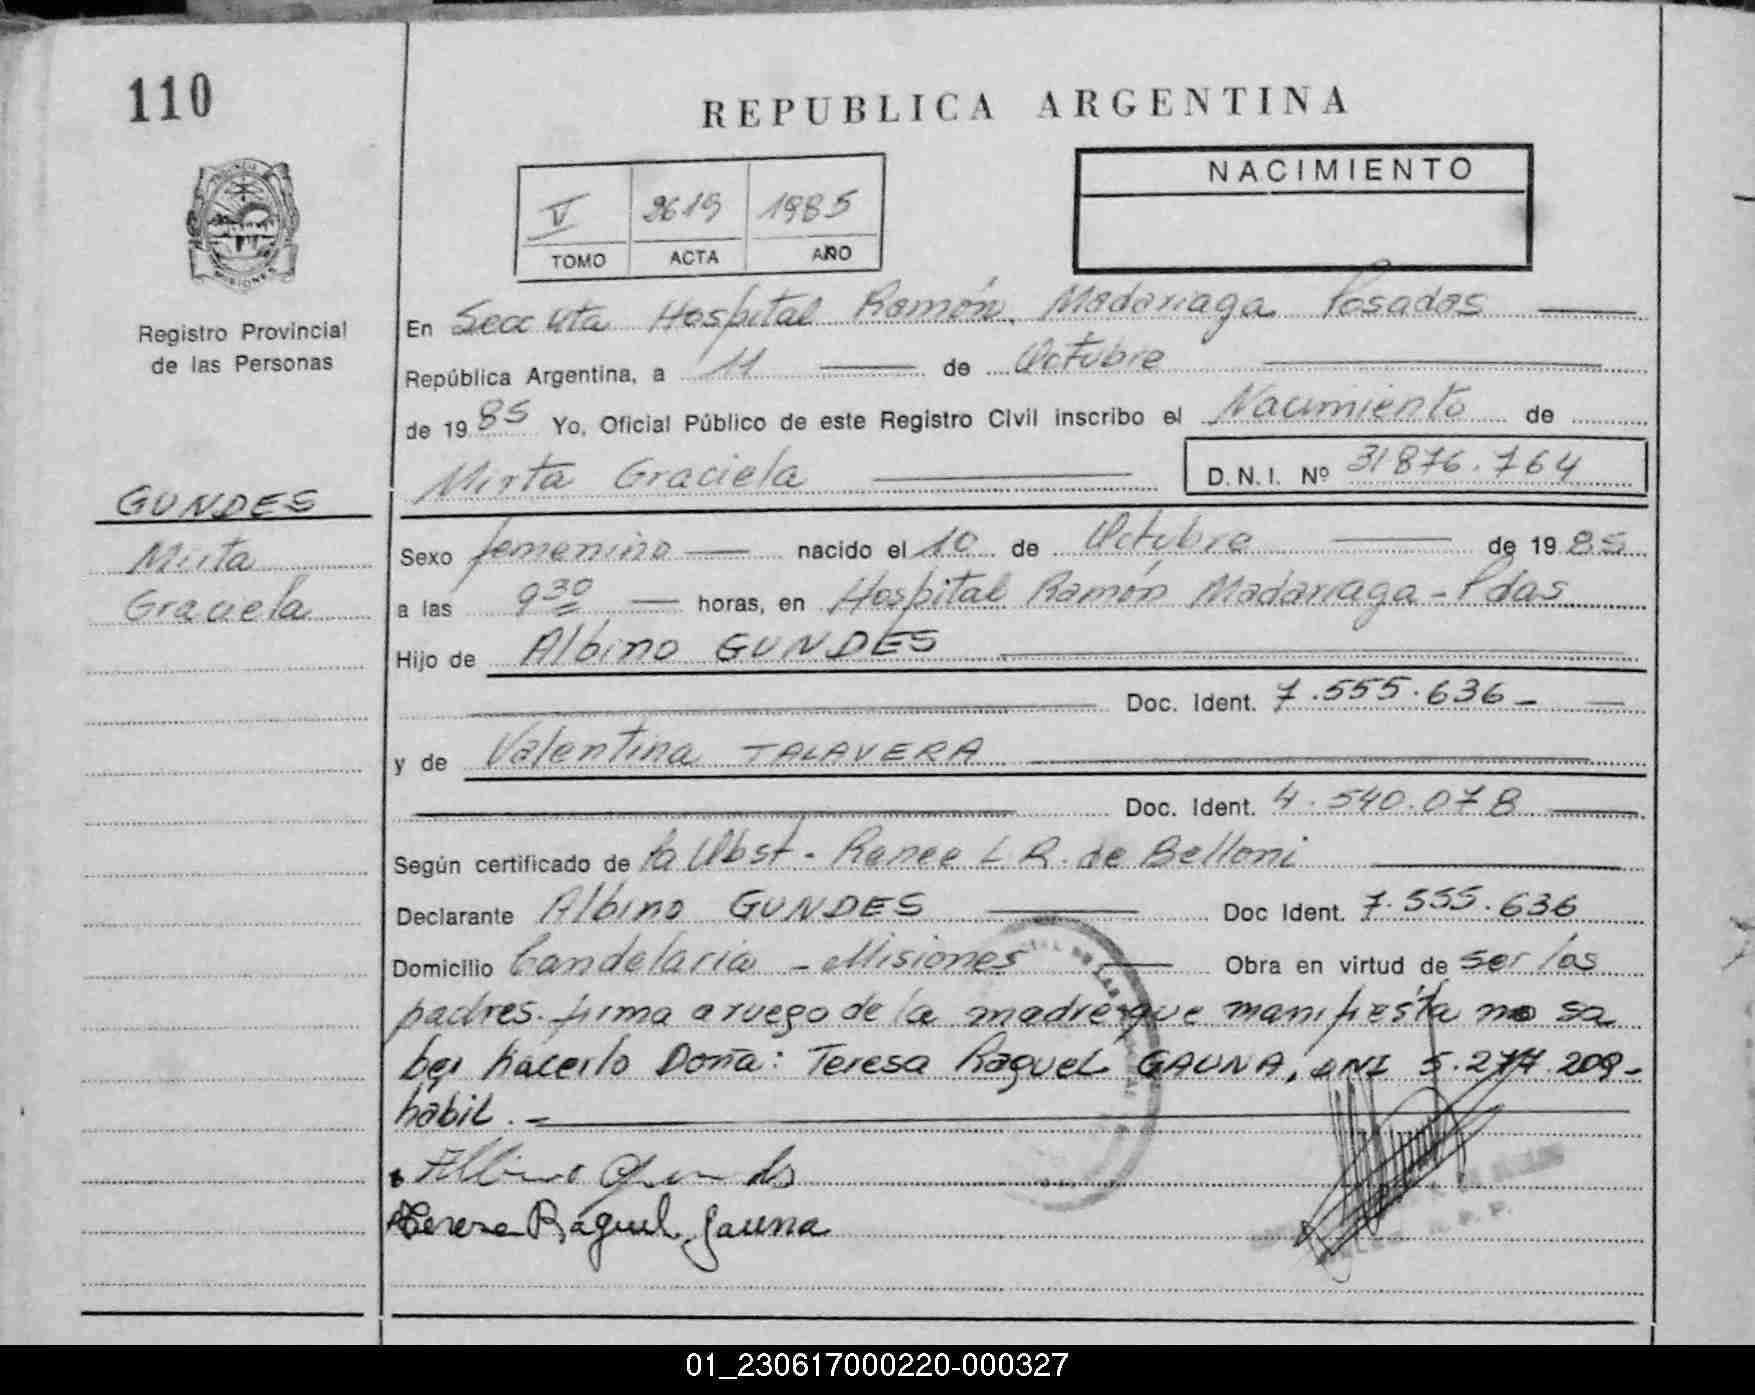 110
REPUBLICA ARGENTINA
NACIMIENTO
V 2619 1985
TOMO ACTA AÑO
MISIONES
Registro Provincial
de las Personas
En Secc 4ta Hospital Ramón Madariaga Posadas
República Argentina, a 11 de Octubre
de 1985 Yo, Oficial Público de este Registro Civil inscribo el Nacimiento de
Mirta Graciela D.N.I. Nº 31876.764
GUNDES
Mirta
Graciela
Sexo femenino nacido el 10 de Octubre de 1985
a las 9 30 horas, en Hospital Ramón Madariaga - Pdas
Hijo de Albino GUNDES
Doc. Ident. 7.555.636-
y de Valentina TALAVERA
Doc. Ident. 4.540.078
Según certificado de la Obst. Renee L R. de Belloni
Declarante Albino GUNDES Doc Ident. 7.555.636
Domicilio Candelaria - Misiones Obra en virtud de ser los
padres. firma a ruego de la madre que manifiesta no sa
ber hacerlo Doña: Teresa Raquel GAUNA, DNI 5.277.209-
hábil.-
Albino Gundes
Teresa Raquel Gauna
R. P. P.
01_230617000220-000327